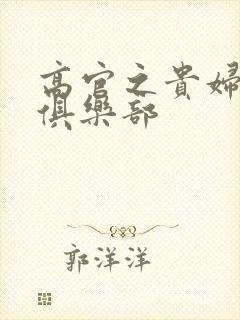 高官之貴婦
俱樂部
郭洋洋